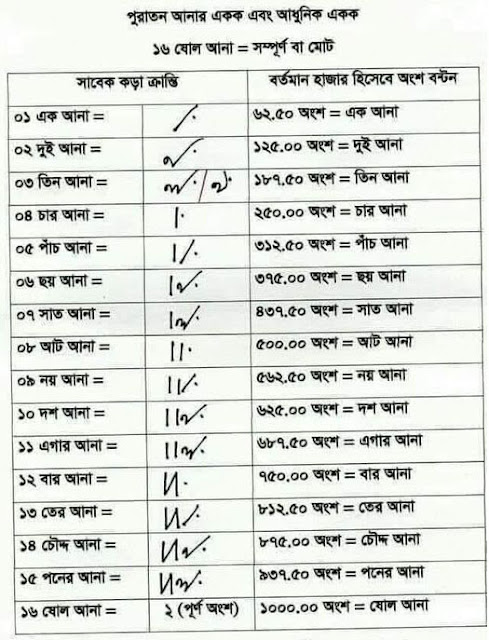 পুরাতন আনার একক এবং আধুনিক একক
১৬ ষোল আনা = সম্পূর্ণ বা মোট
সাবেক কড়া ক্রান্তি বর্তমান হাজার হিসেবে অংশ বন্টন
০১ এক আনা = ৬২.৫০ অংশ = এক আনা
০২ দুই আনা = ১২৫.০০ অংশ = দুই আনা
০৩ তিন আনা = ১৮৭.৫০ অংশ = তিন আনা
০৪ চার আনা = ২৫০.০০ অংশ = চার আনা
০৫ পাঁচ আনা = ৩১২.৫০ অংশ = পাঁচ আনা
০৬ ছয় আনা = ৩৭৫.০০ অংশ = ছয় আনা
০৭ সাত আনা = ৪৩৭.৫০ অংশ = সাত আনা
০৮ আট আনা = ৫০০.০০ অংশ = আট আনা
০৯ নয় আনা = ৫৬২.৫০ অংশ = নয় আনা
১০ দশ আনা = ৬২৫.০০ অংশ = দশ আনা
১১ এগার আনা = ৬৮৭.৫০ অংশ = এগার আনা
১২ বার আনা = ৭৫০.০০ অংশ = বার আনা
১৩ তের আনা = ৮১২.৫০ অংশ = তের আনা
১৪ চৌদ্দ আনা = ৮৭৫.০০ অংশ = চৌদ্দ আনা
১৫ পনের আনা = ৯৩৭.৫০ অংশ = পনের আনা
১৬ ষোল আনা = ২ (পূর্ণ অংশ) ১০০০.০০ অংশ = ষোল আনা